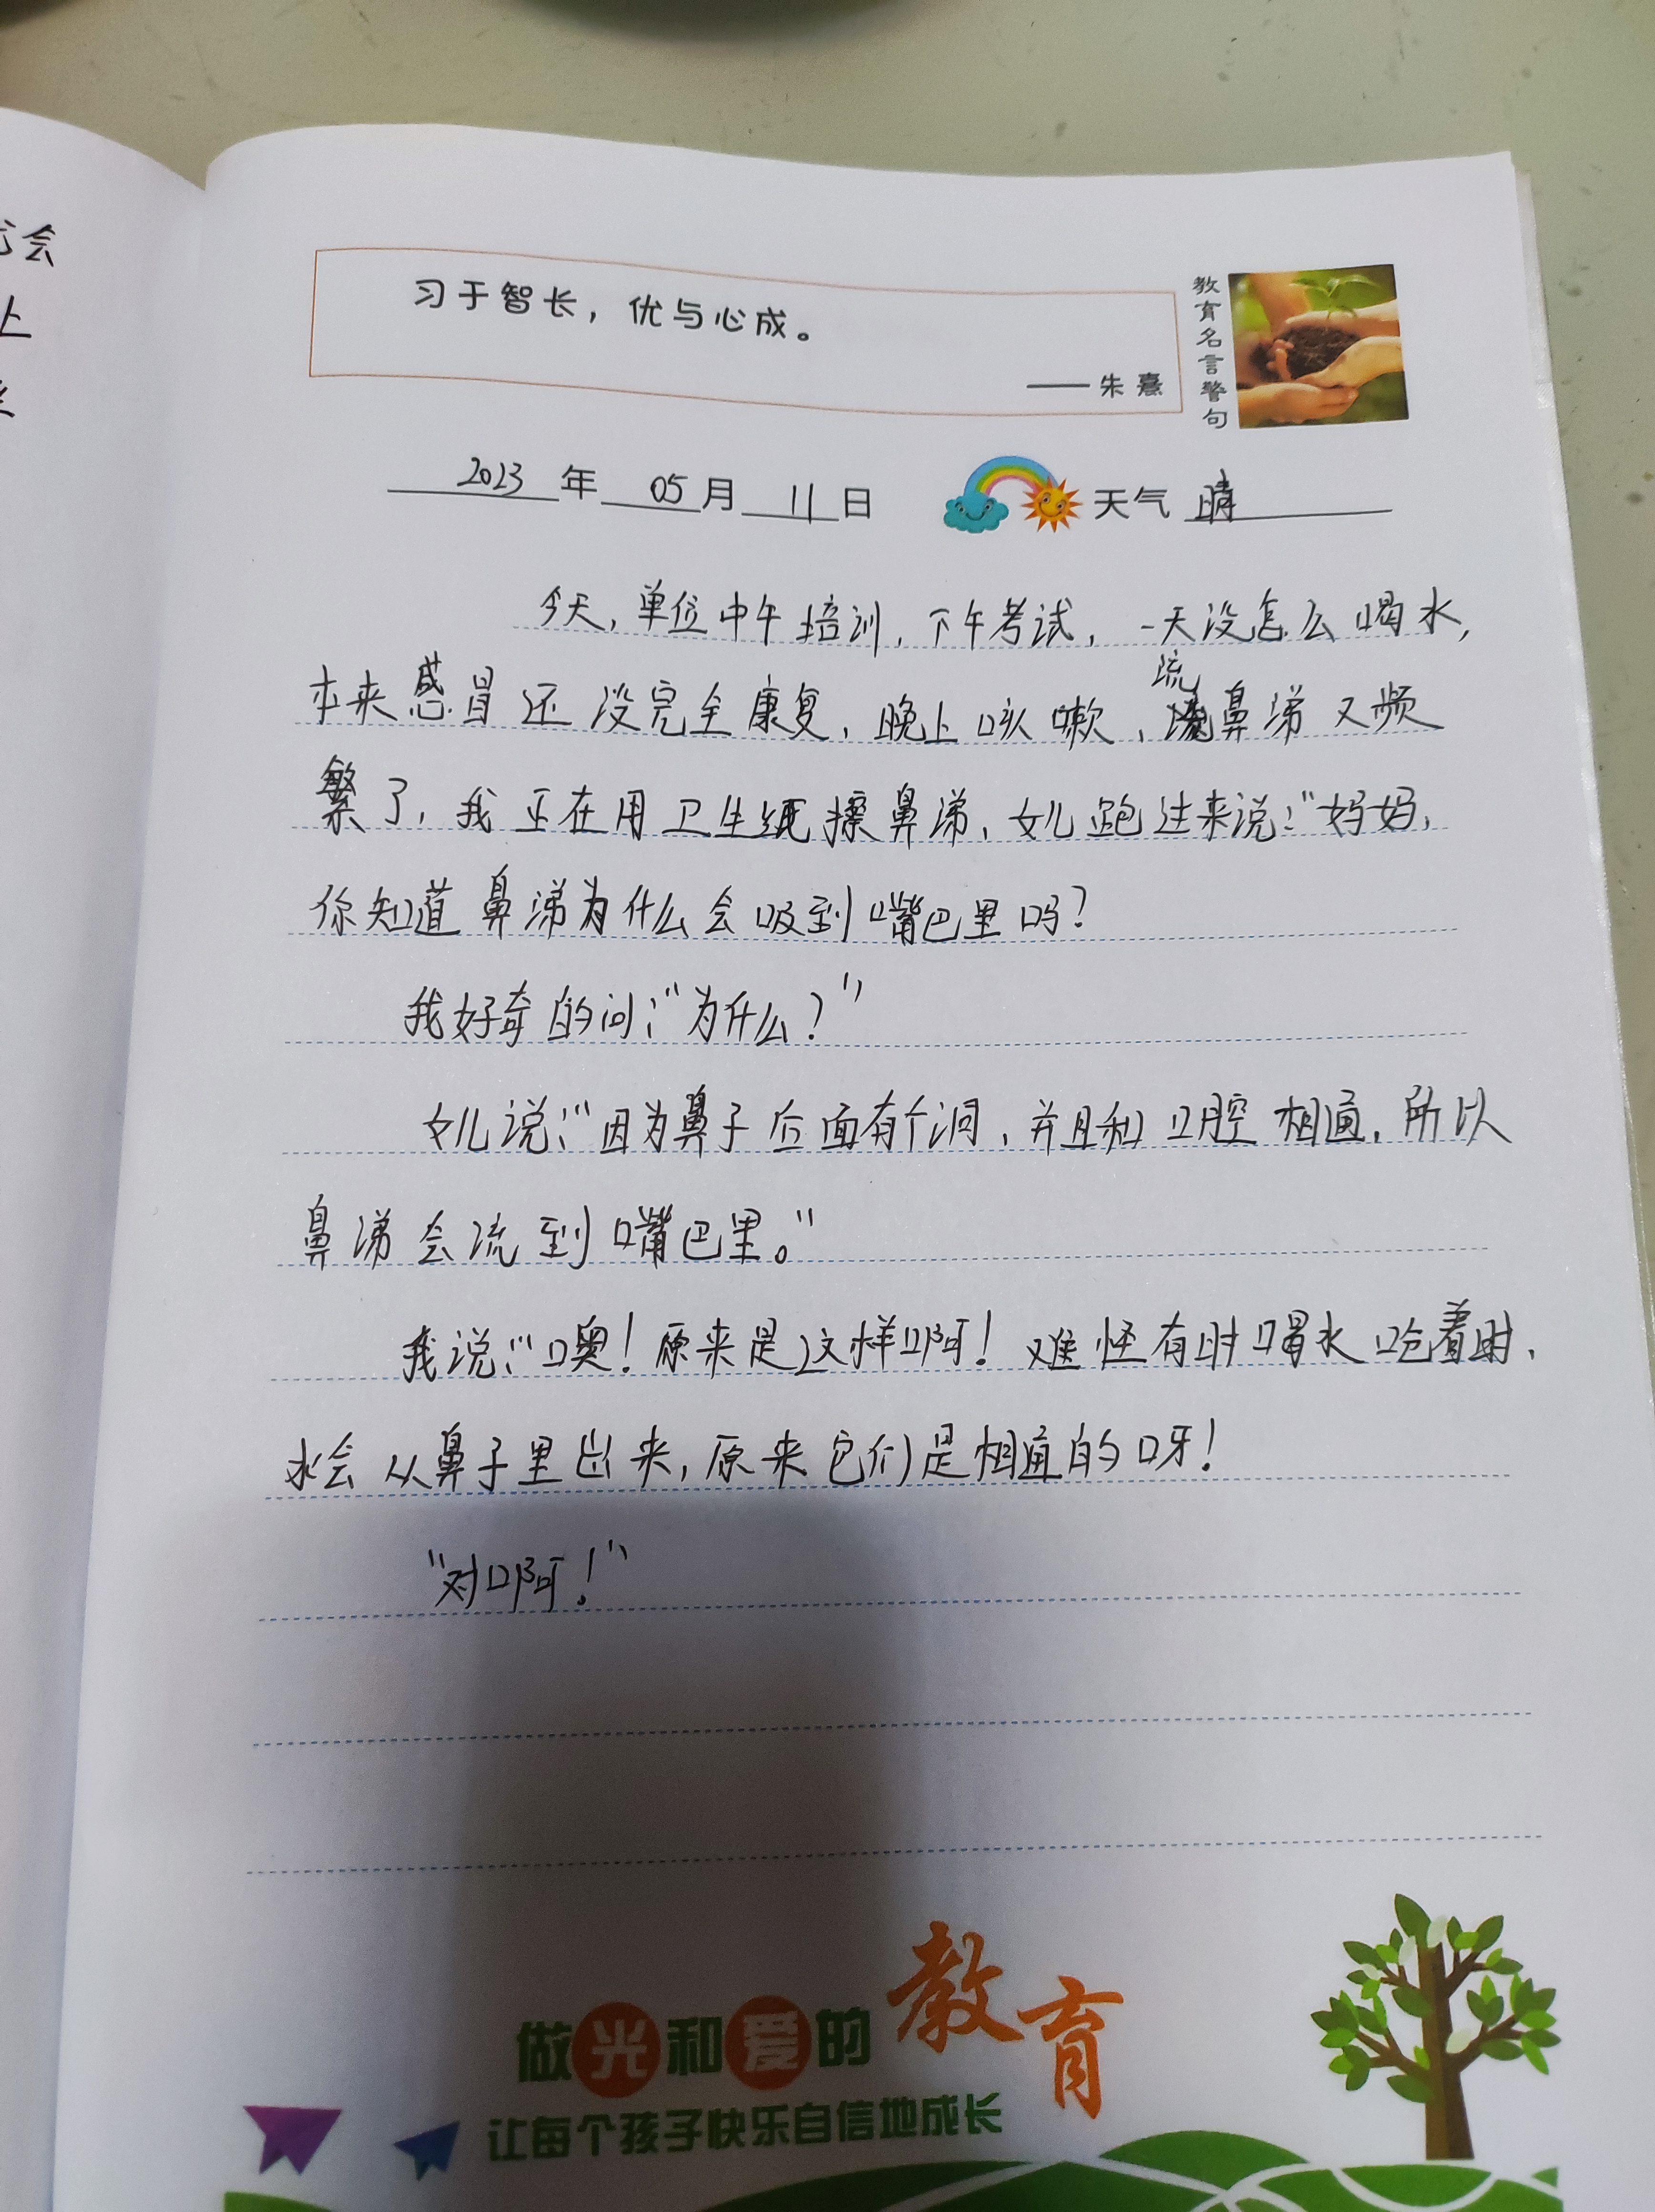 会
上
习于智长，优与心成。
——朱熹
教育名言警句
2023年05月11日 天气 晴
今天，单位中午培训，下午考试，一天没怎么喝水，
本来感冒还没完全康复，晚上咳嗽，流鼻涕又频
繁了，我正在用卫生纸擦鼻涕，女儿跑过来说：“妈妈，
你知道鼻涕为什么会吸到嘴巴里吗？
我好奇的问：“为什么？”
女儿说：“因为鼻子后面有个洞，并且和口腔相通，所以
鼻涕会流到嘴巴里。”
我说：“噢！原来是这样啊！难怪有时喝水呛着时，
水会从鼻子里出来，原来它们是相通的呀！
“对啊！”
做光和爱的教育
让每个孩子快乐自信地成长